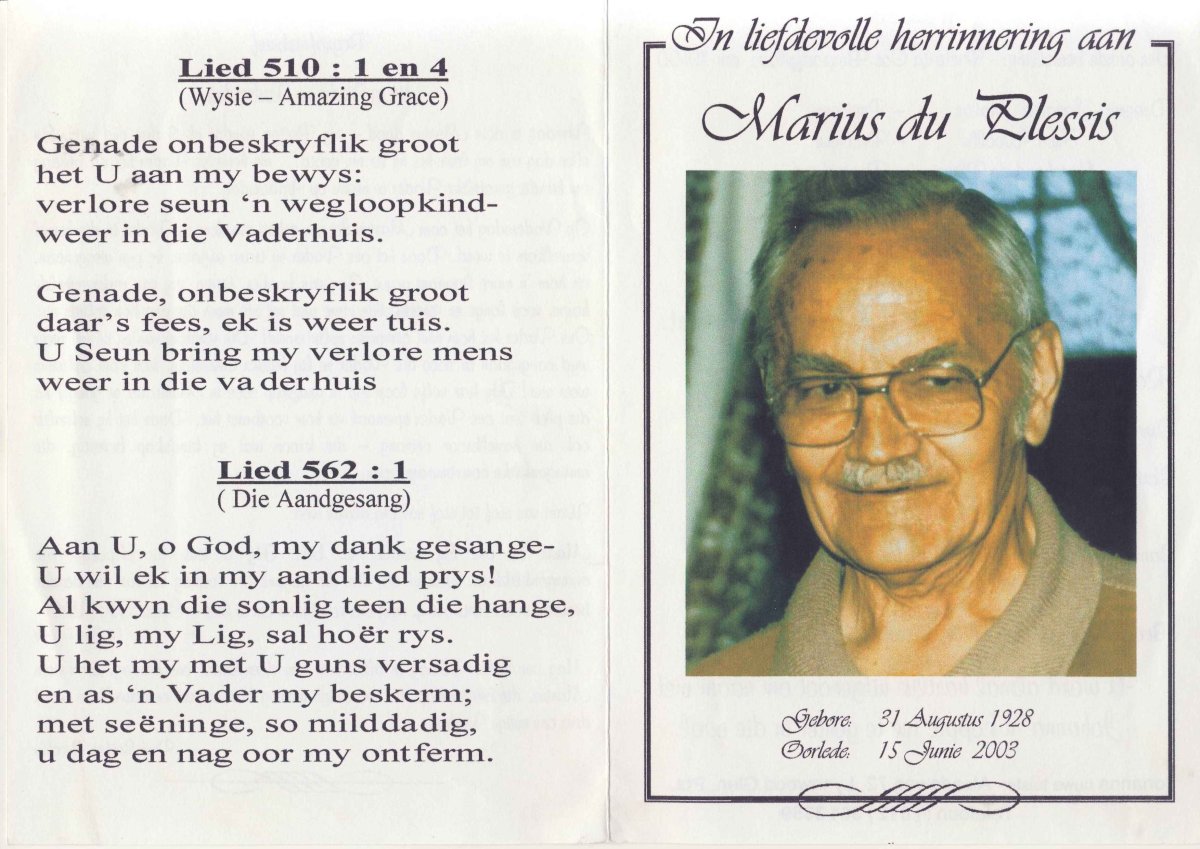 Lied 510 : 1 en 4
(Wysie – Amazing Grace)
Genade onbeskryflik groot
het U aan my bewys:
verlore seun ‘n wegloopkind-
weer in die Vaderhuis.
Genade, onbeskryflik groot
daar’s fees, ek is weer tuis.
U Seun bring my verlore mens
weer in die va derhuis
Lied 562 : 1
( Die Aandgesang)
Aan U, o God, my dank gesange-
U wil ek in my aandlied prys!
Al kwyn die sonlig teen die hange,
U lig, my Lig, sal hoër rys.
U het my met U guns versadig
en as ‘n Vader my beskerm;
met seëninge, so milddadig,
u dag en nag oor my ontferm.
In liefdevolle herrinnering aan
Marius du Plessis
Gebore: 31 Augustus 1928
Oorlede: 15 Junie 2003